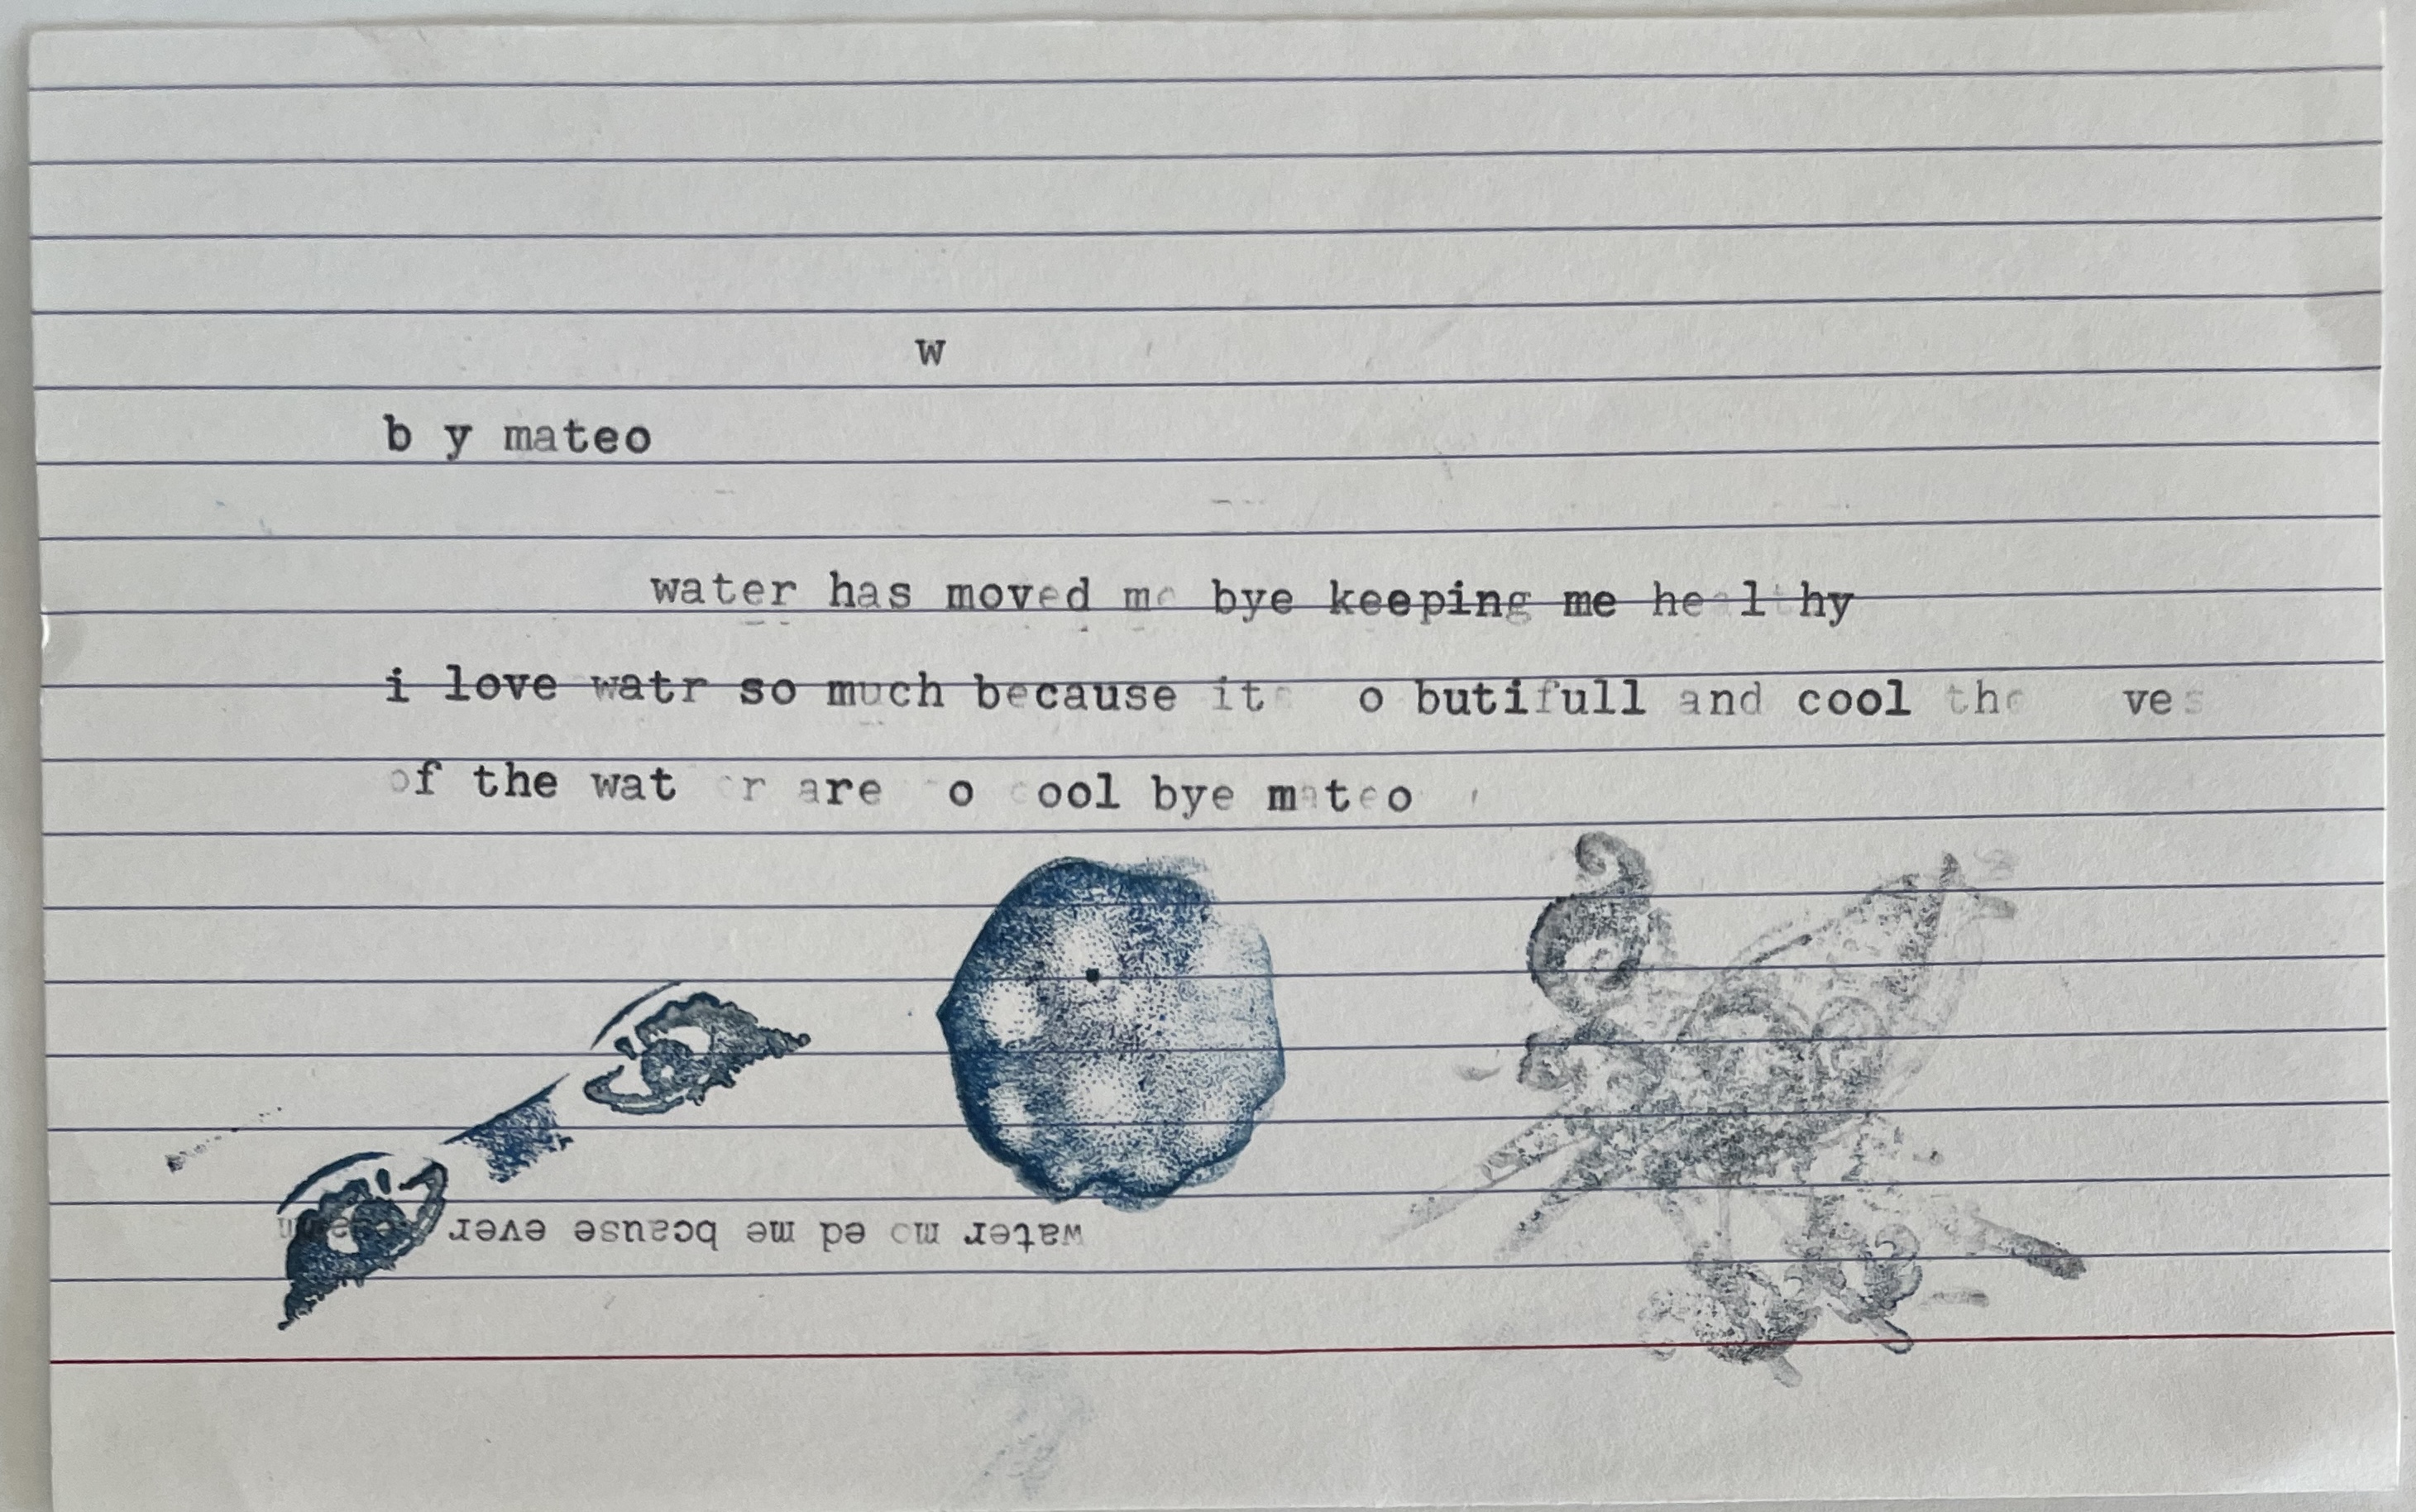 w
b y mateo
water has moved me bye keeping me healthy
i love watr so much because its o butifull and cool the ves
of the wat er are so cool bye mateo
water mo ed me bcause ever